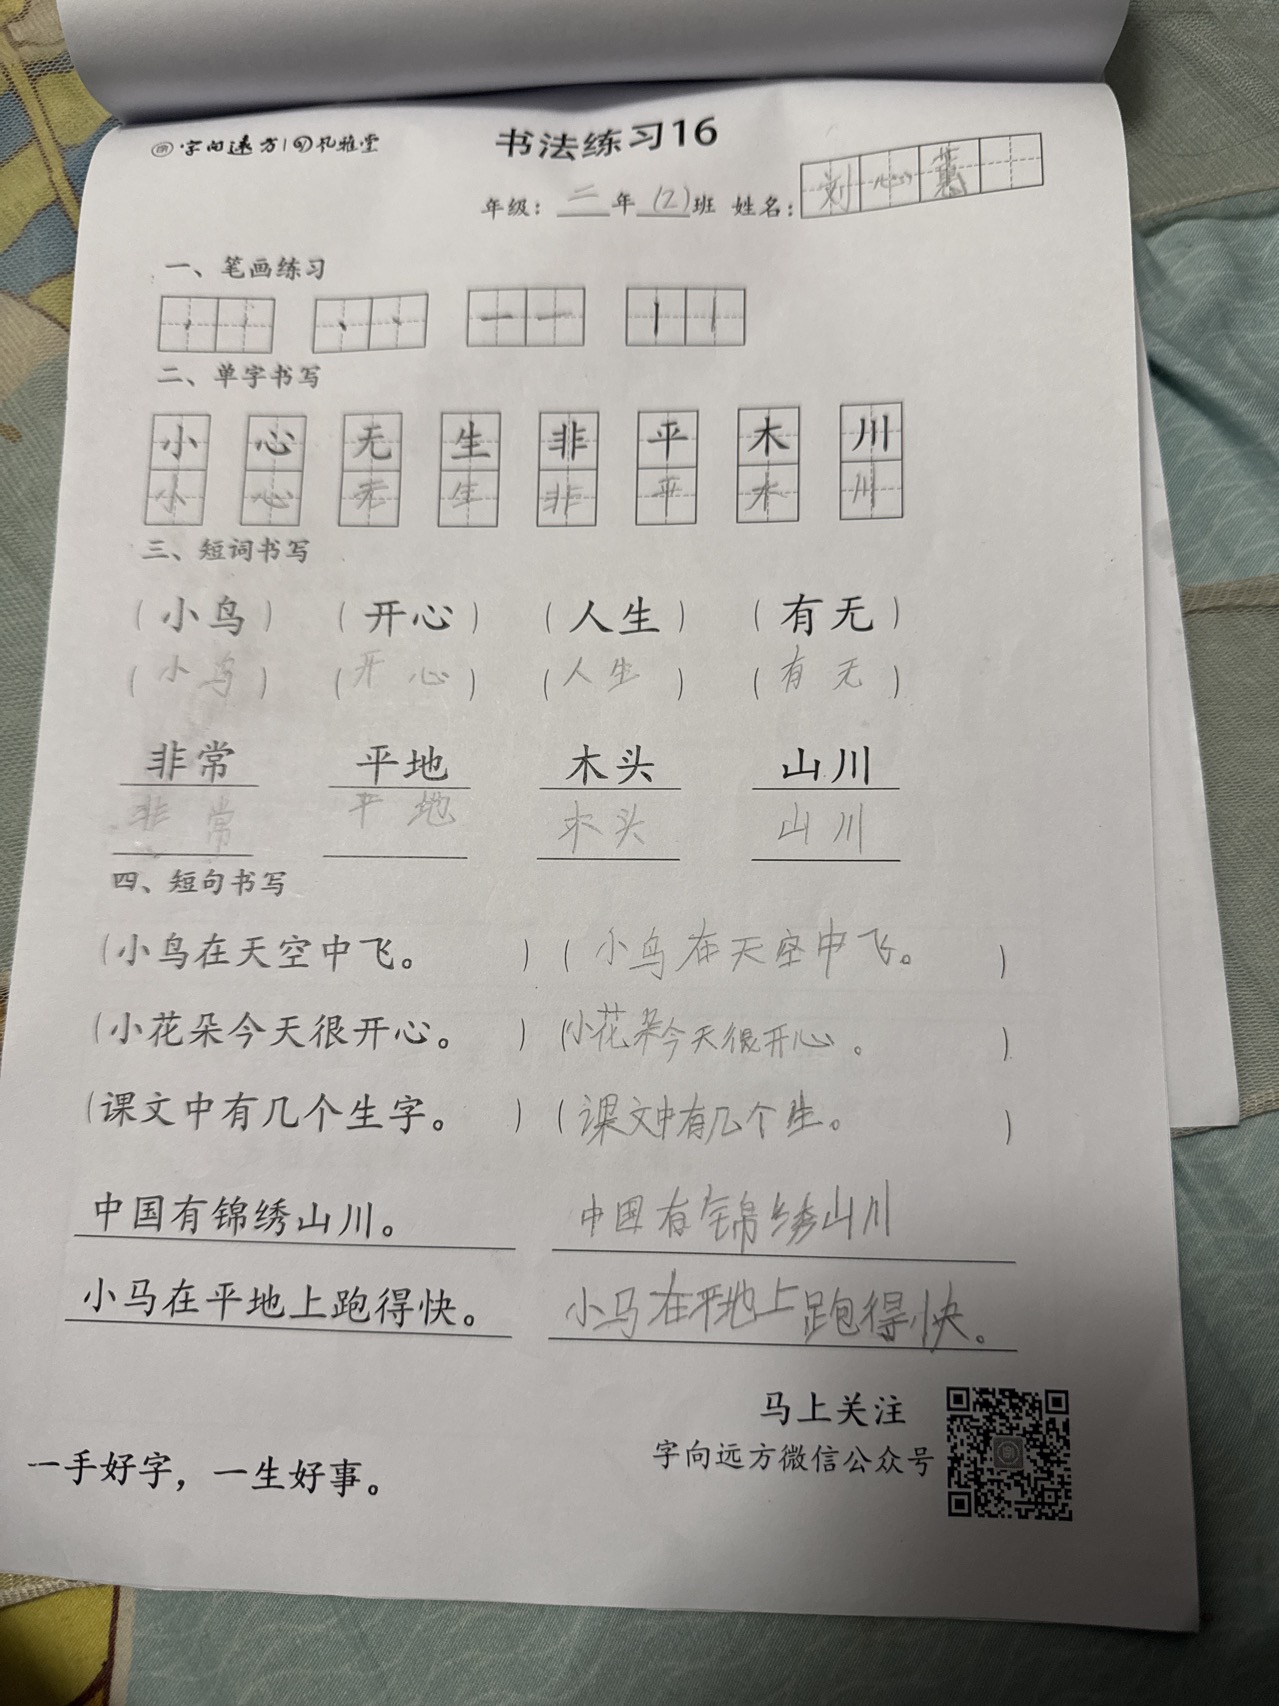 字向远方 | 礼雅堂
书法练习16
年级：二年(2)班 姓名：刘心慧
一、笔画练习
二、单字书写
小 心 无 生 非 平 木 川
小 心 无 生 非 平 木 川
三、短词书写
（小鸟） （开心） （人生） （有无）
（小鸟） （开心） （人生） （有无）
非常 平地 木头 山川
非常 平地 木头 山川
四、短句书写
（小鸟在天空中飞。） （小鸟在天空中飞。）
（小花朵今天很开心。） （小花朵今天很开心。）
（课文中有几个生字。） （课文中有几个生。）
中国有锦绣山川。 中国有锦绣山川
小马在平地上跑得快。 小马在平地上跑得快。
马上关注
字向远方微信公众号
一手好字，一生好事。